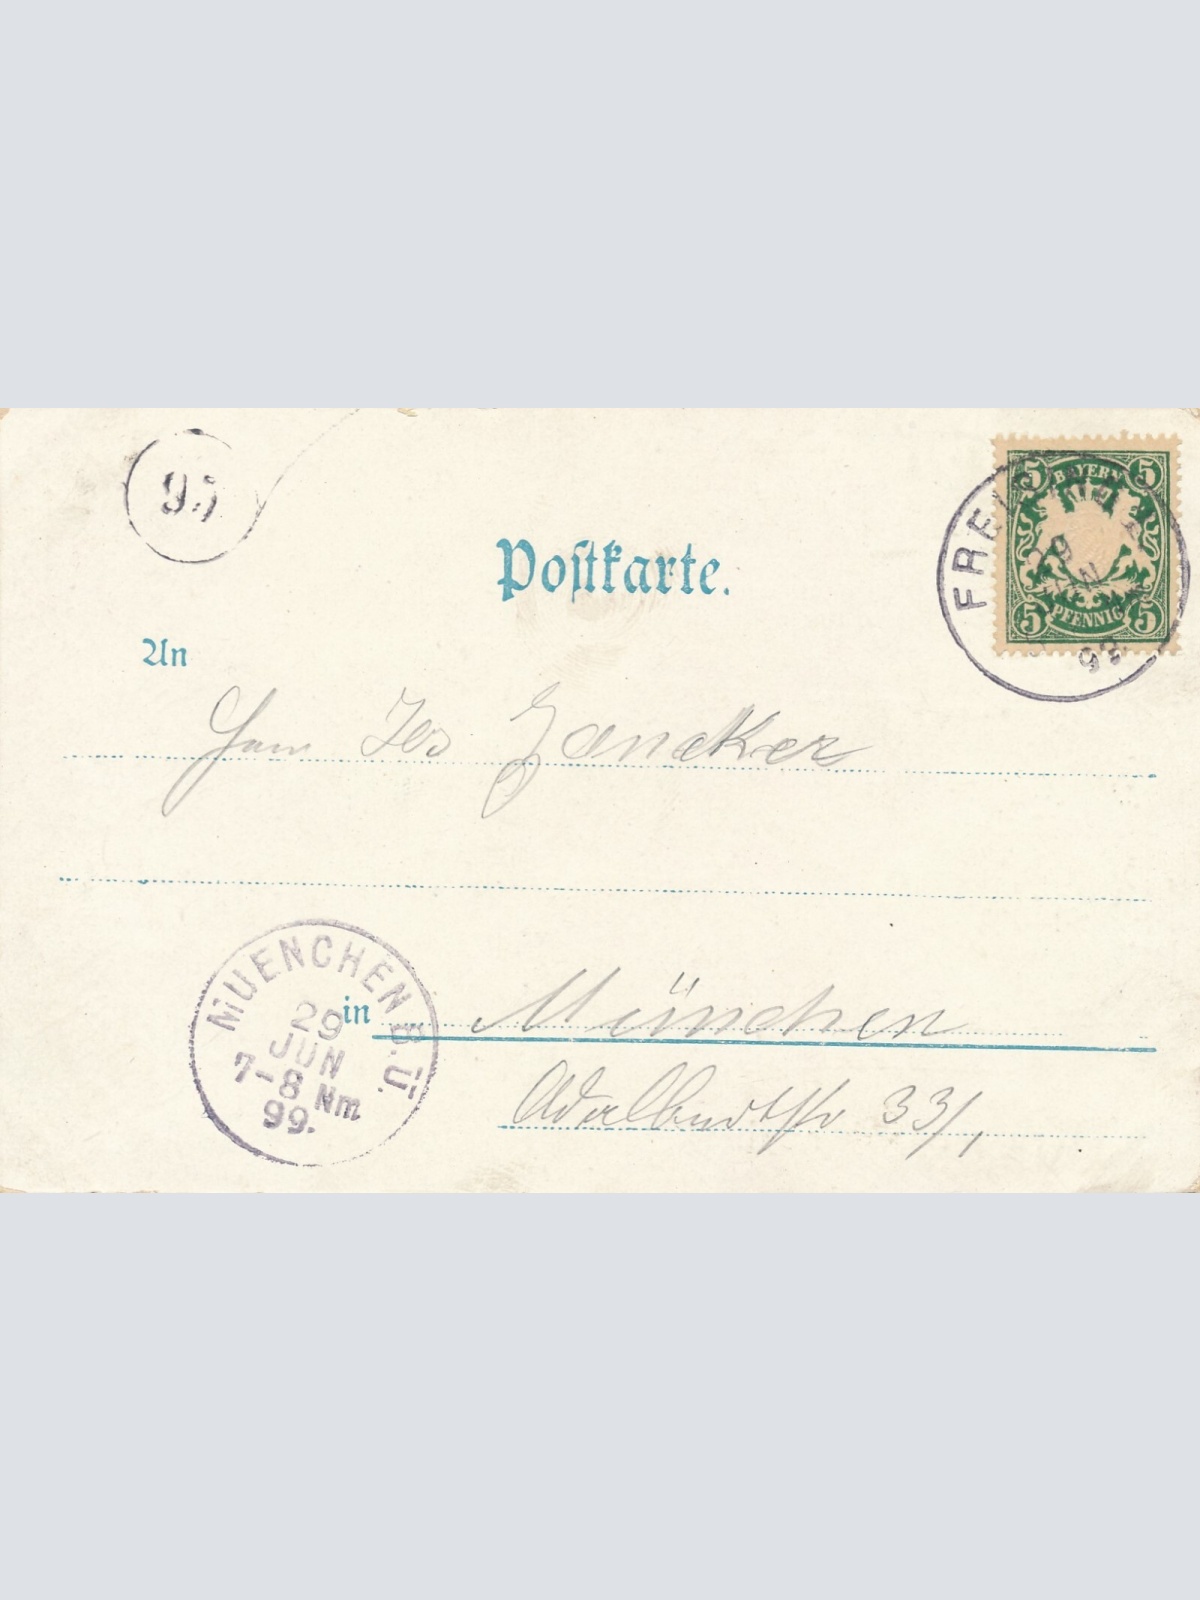 95
5 BAYERN 5
5 PFENNIG 5
FREISING
Postkarte.
An
Herrn Jos
in München
Adalbertstr 33/
MUENCHEN B.Ü.
29
JUN
7-8 Nm
99.